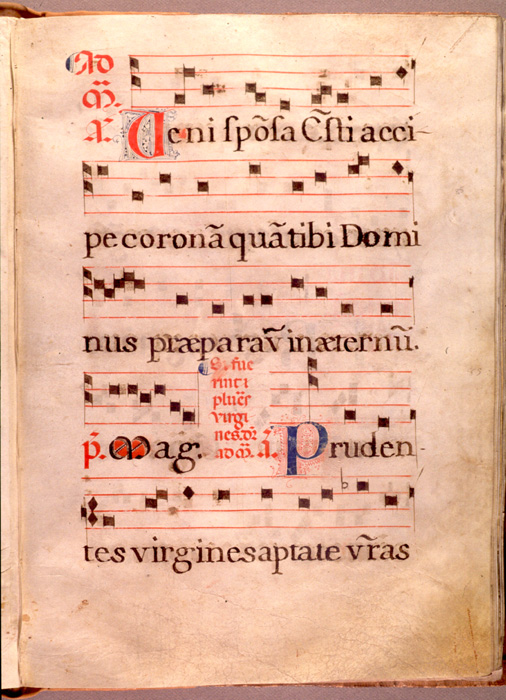 Ad
M̃.
A. Veni spõsa C̃sti acci-
pe coronã quãtibi Domi
nus præparav̄ inæternũ.
S. fue
rint
plures
virgi
nes
ad M̃. A.
p̃. Mag. Pruden-
tes virgines aptate vr̃as